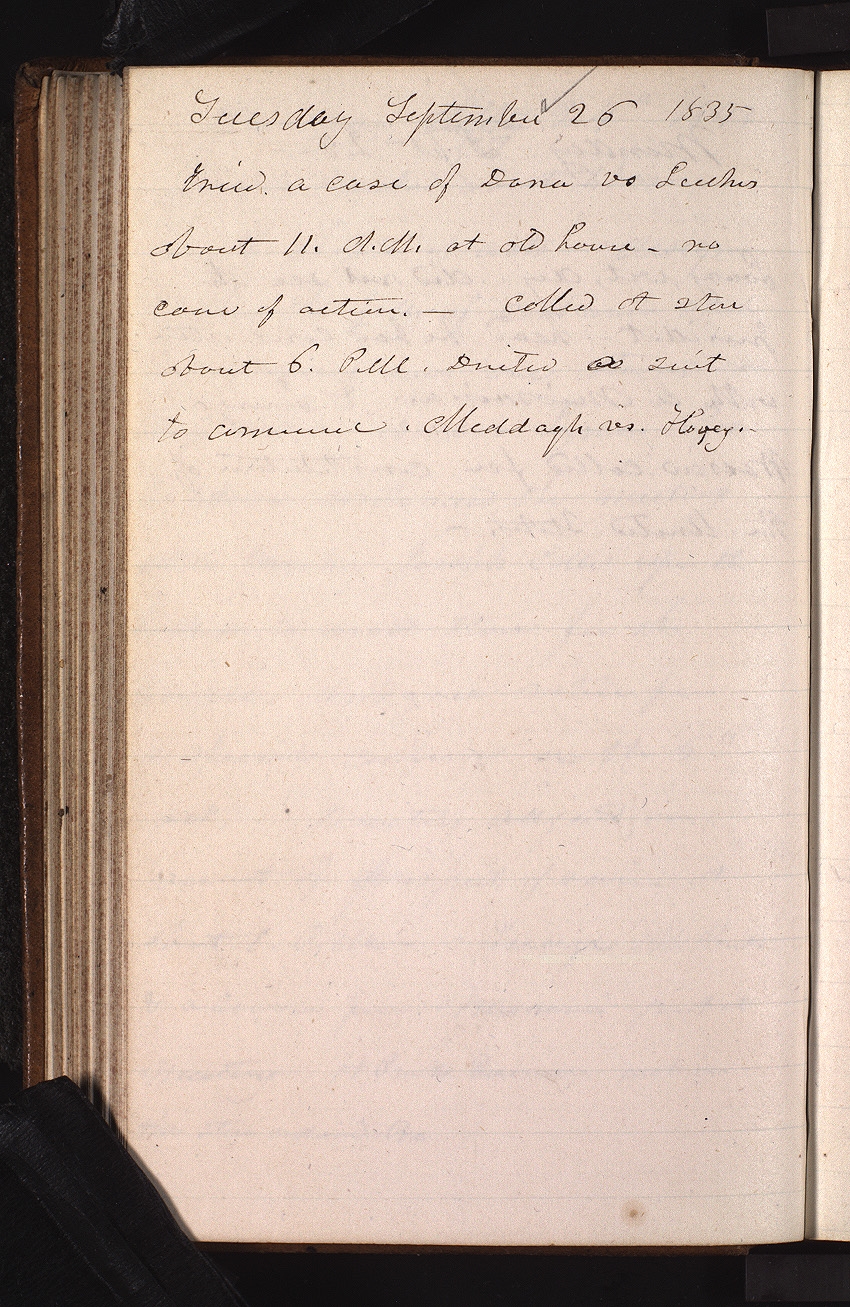 Tuesday September 26 1835
Tried a case of Dana vs
about 11. A.M. at old house - no
cause of action. — Called at store
about 6. P.M. a suit
to commence. Meddagh vs. Hovey.